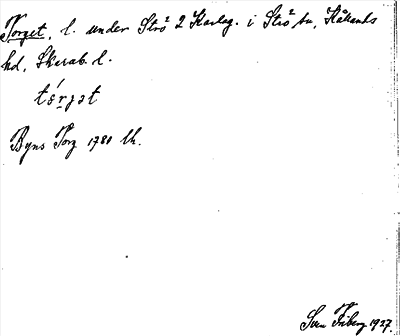 Torget, l. under Strö 2 Karleg. i Strö sn, Kållands
hd, Skarab. l.
tớrjət
Byns Torg 1780 Lh.
Sven Friberg 1927.